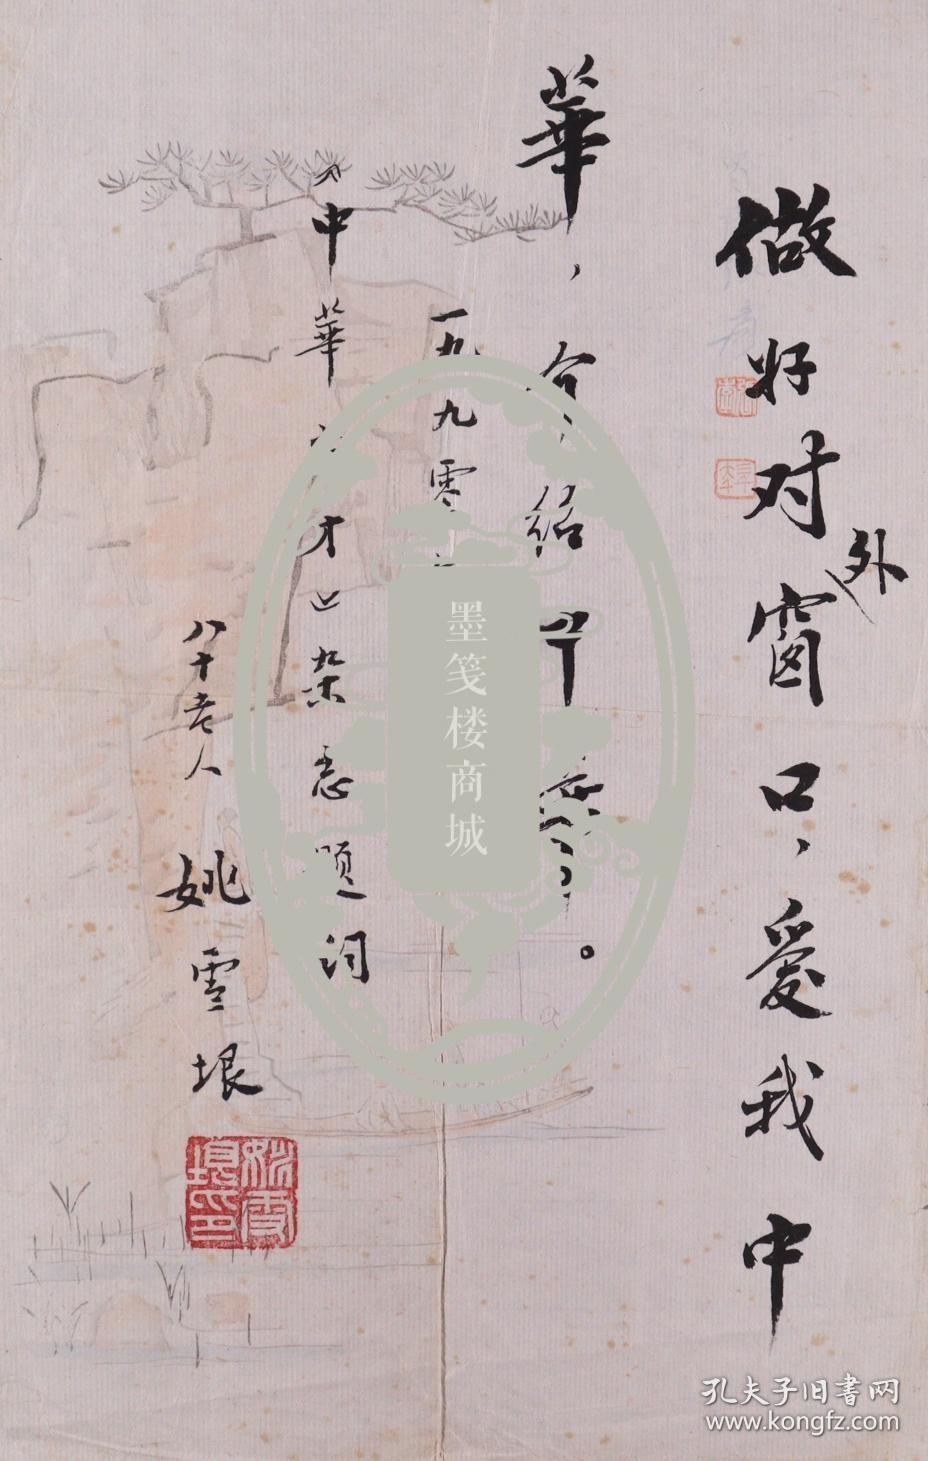 做好对外窗口，爱我中
華，介绍中華。
一九九零
中華英才 杂志题词
八十老人
姚雪垠
姚雪垠印
墨笺楼商城
孔夫子旧書网
www.kongfz.com